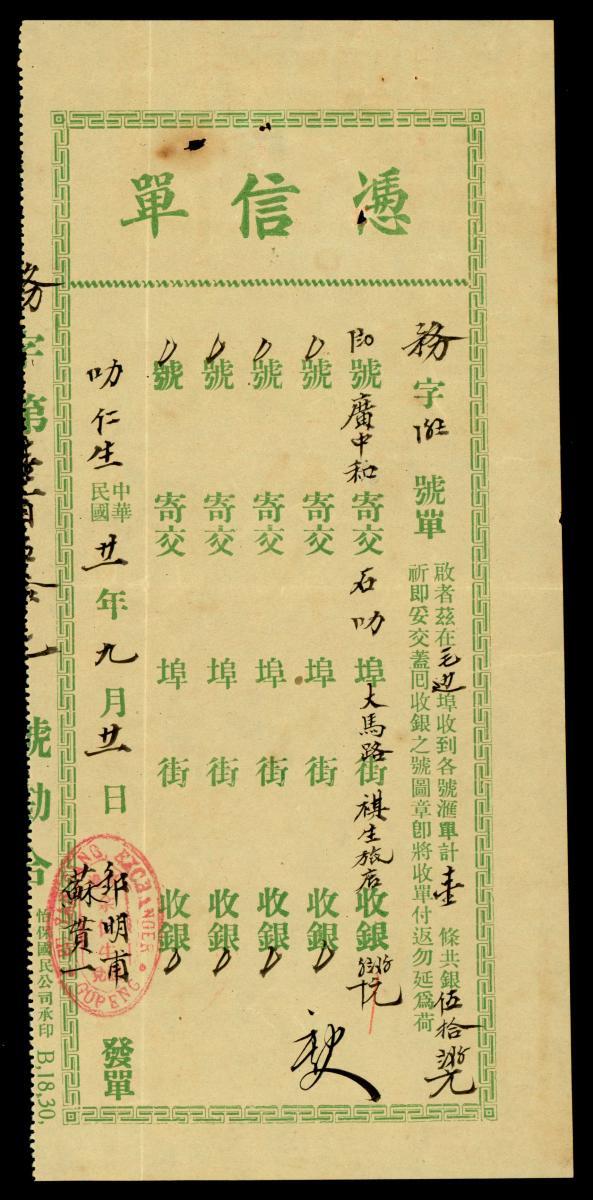 憑信單
務字 號單
啟者茲在毛邊埠收到各號滙單計壹條共銀伍拾 元
祈即妥交蓋囘收銀之號圖章即將收單付返勿延爲荷
號廣中和寄交石叻埠大馬路街祺生旅店收銀 元
號 寄交 埠 街 收銀
號 寄交 埠 街 收銀
號 寄交 埠 街 收銀
號 寄交 埠 街 收銀
叻仁生中華民國廿一年九月廿一日 鄒明甫 蘇貫一 發單
EXCHANGER
GOPENG
務字第壹百伍拾 號勘合
怡保國民公司承印 B,18,30,